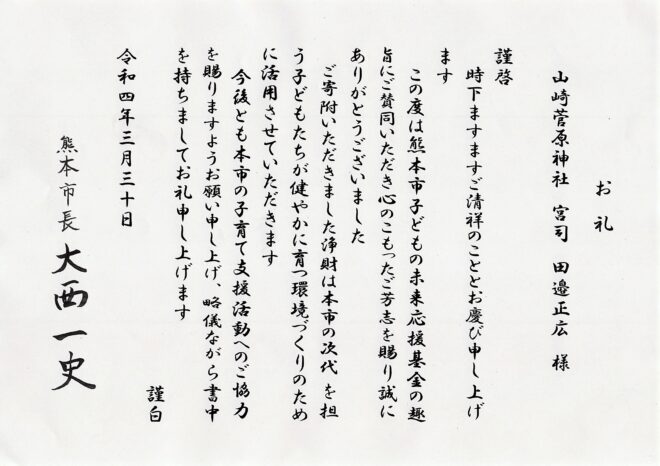 お礼
山崎菅原神社　宮司　田邉正広　様
謹啓
時下ますますご清祥のこととお慶び申し上げ
ます
この度は熊本市子どもの未来応援基金の趣
旨にご賛同いただき心のこもったご芳志を賜り誠に
ありがとうございました
ご寄附いただきました浄財は本市の次代を担
う子どもたちが健やかに育つ環境づくりのため
に活用させていただきます
今後とも本市の子育て支援活動へのご協力
を賜りますようお願い申し上げ、略儀ながら書中
を持ちましてお礼申し上げます
謹白
令和四年三月三十日
熊本市長　大西一史